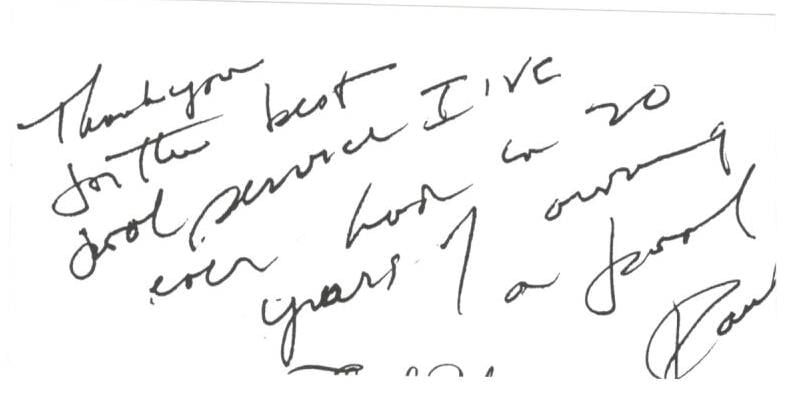 Thank you
for the best
pool service I've
ever had in 20
years of owning
a pool